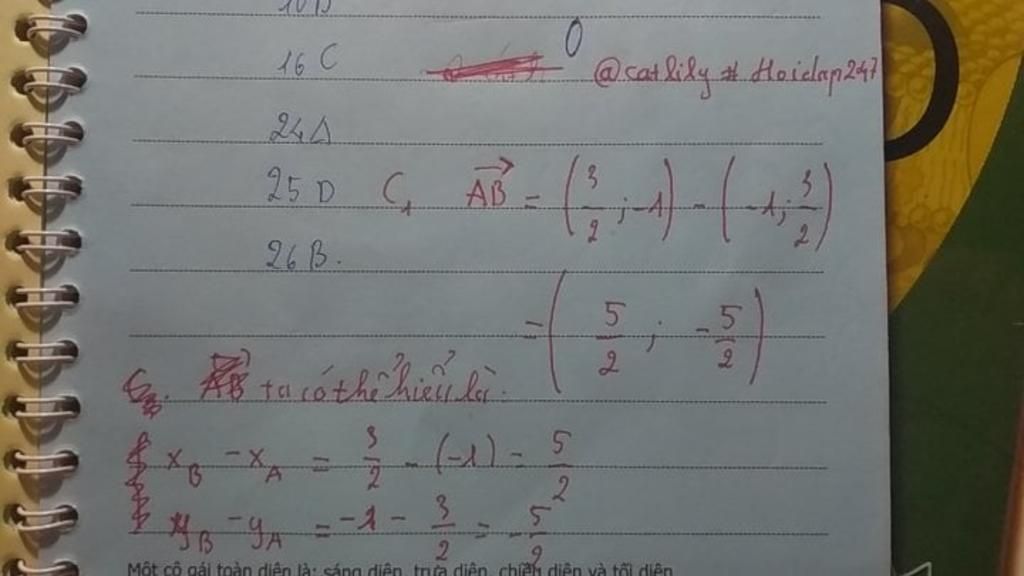 16 C
O
@catlily # Hoidap247
24 A
25 D C₁ \overrightarrow{AB} = (3/2 ; -1) - (-1 ; 3/2)
26 B.
= (5/2 ; -5/2)
\overrightarrow{AB} ta có thể hiểu là:
x_B - x_A = 3/2 - (-1) = 5/2
y_B - y_A = -1 - 3/2 = -5/2
Một cô gái toàn diện là: sáng diện, trưa diện, chiều diện và tối diện